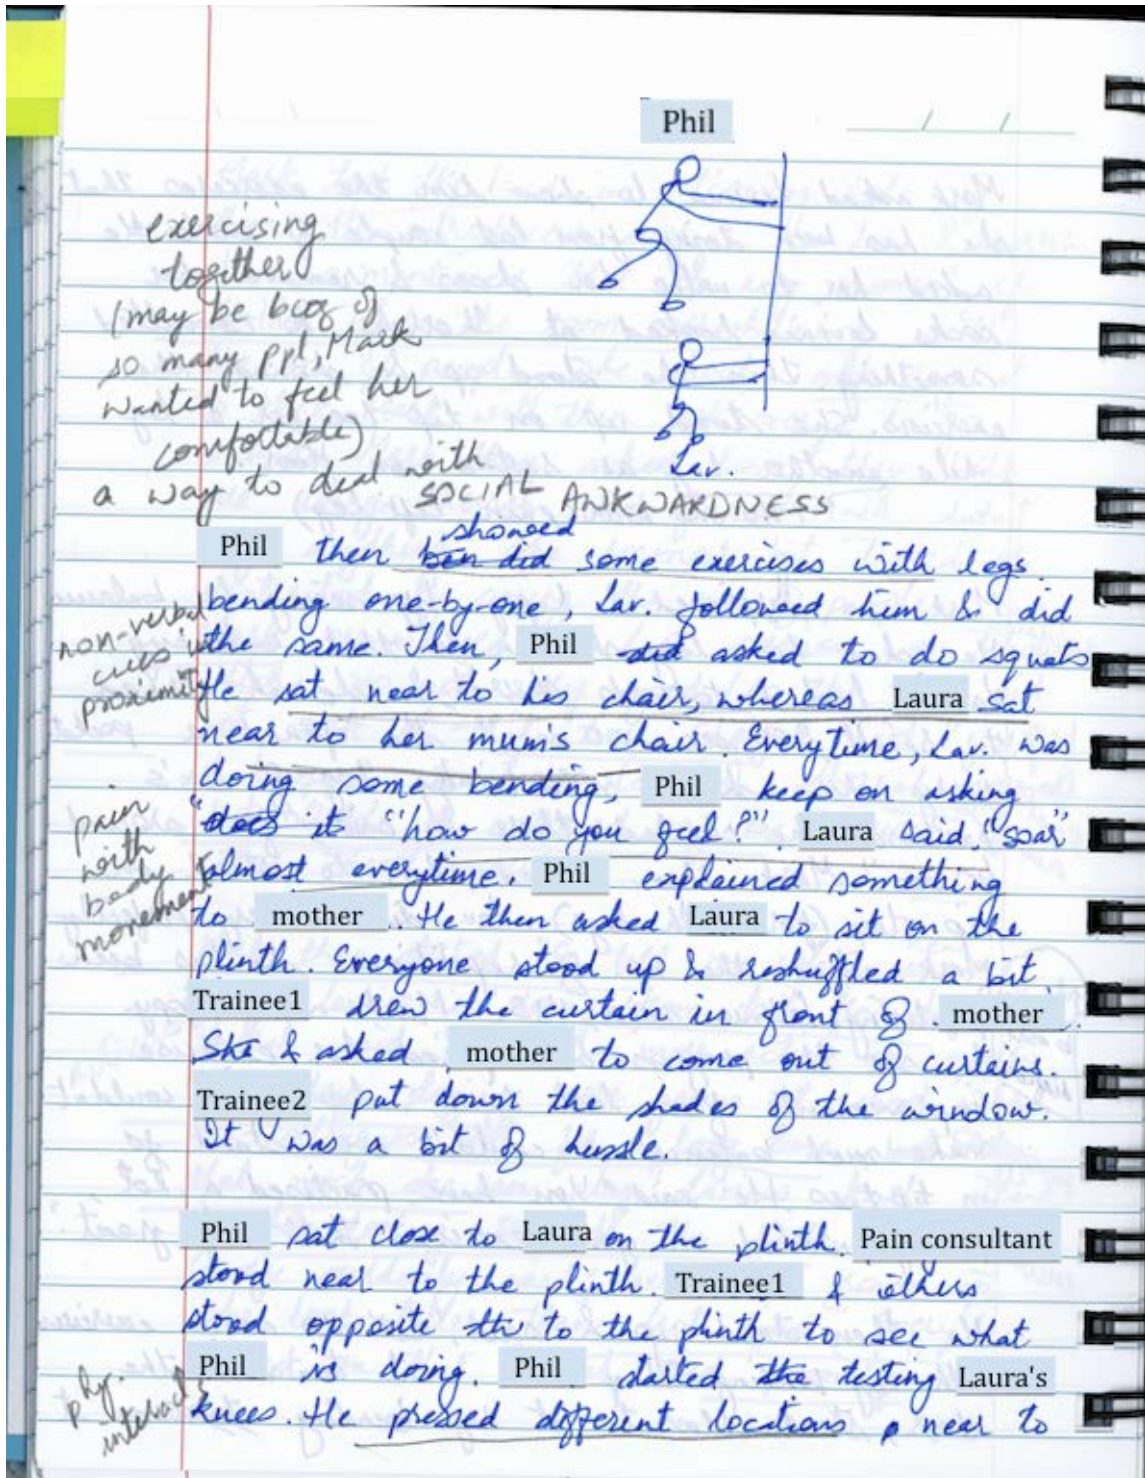 Phil
/ /
exercising
together
(may be bcoz of
so many ppl, Mark
wanted to feel her
comfortable)
a way to deal with
SOCIAL AWKWARDNESS
Lav.
showed
Phil then ben did some exercises with legs
bending one-by-one, Lav. followed him & did
the same. Then, Phil did asked to do squats
He sat near to his chair, whereas Laura sat
near to her mum's chair. Everytime, Lav. was
doing some bending, Phil keep on asking
"does it "how do you feel?" Laura said, "soar"
almost everytime. Phil explained something
to mother. He then asked Laura to sit on the
plinth. Everyone stood up & reshuffled a bit.
Trainee1 drew the curtain in front of mother.
She & asked mother to come out of curtains.
Trainee2 put down the shades of the window.
It was a bit of hussle.
non-verbal
cues in
proximity
pain
with
body
movement
Phil sat close to Laura on the plinth. Pain consultant
stood near to the plinth. Trainee1 & others
stood opposite th to the plinth to see what
Phil is doing. Phil started the testing Laura's
knees. He pressed different locations near to
phy.